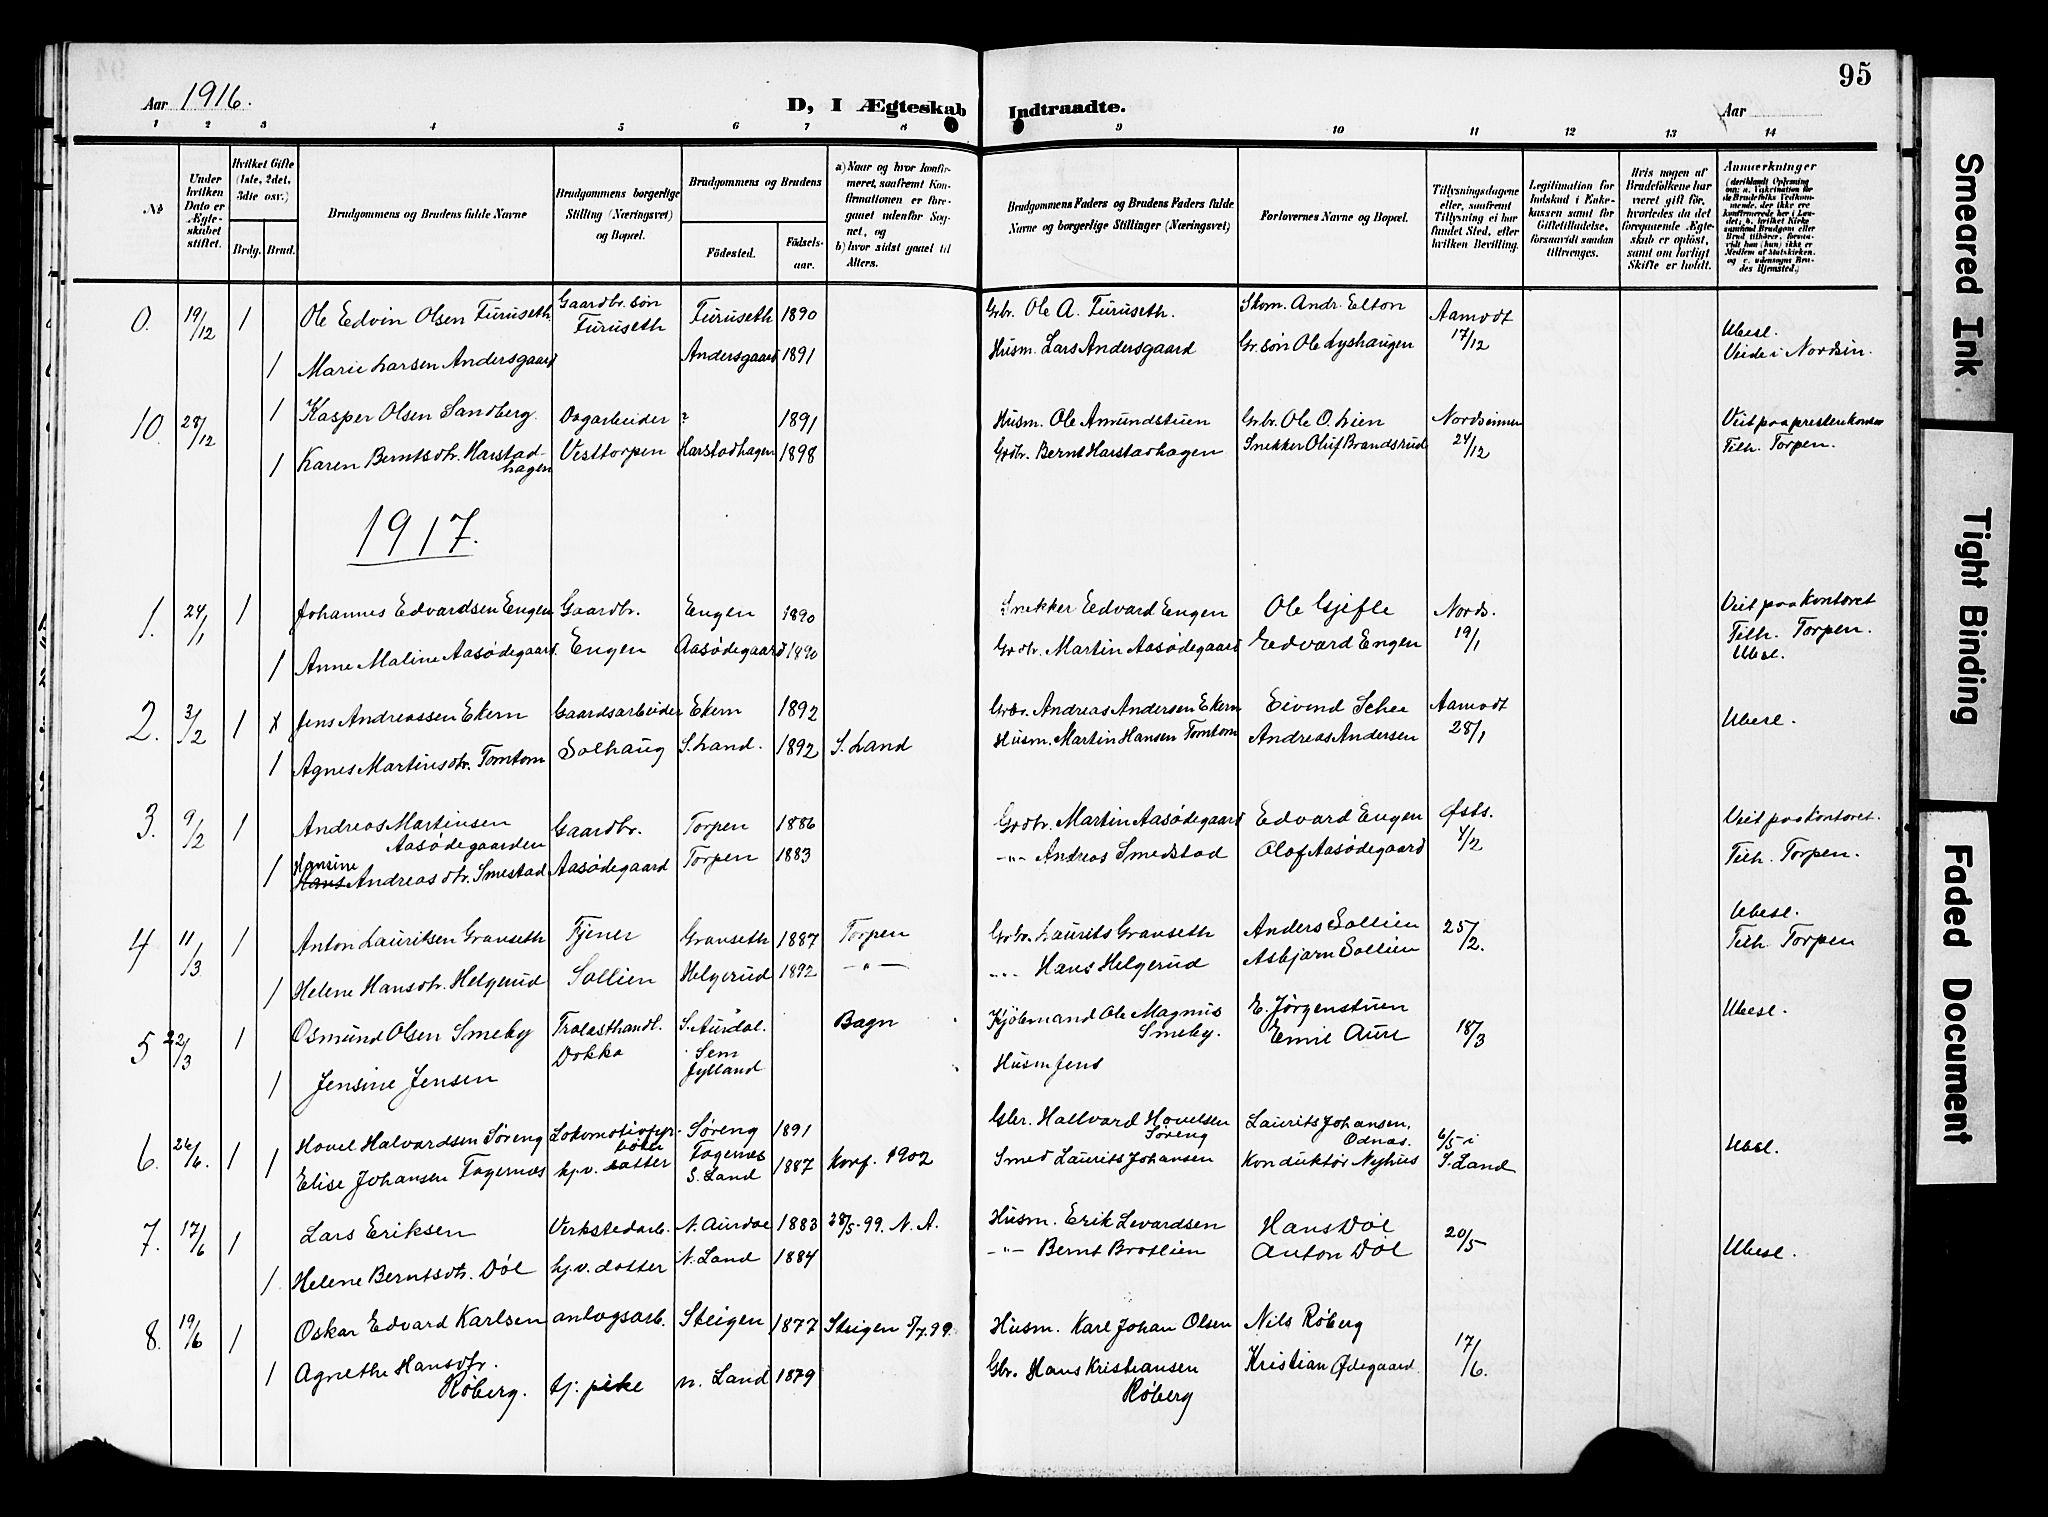 95
Aar 1916.
D, I Ægteskab Indtraadte.
Aar
1 2 3 4 5 6 7 8 9 10 11 12 13 14
№
Under hvilken Dato er Ægteskabet stiftet.
Hvilket Gifte (1ste, 2det, 3die osv.)
Brdg. Brud.
Brudgommens og Brudens fulde Navne
Brudgommens borgerlige Stilling (Næringsvei) og Bopæl.
Brudgommens og Brudens
Födested.
Födselsaar.
a) Naar og hvor konfirmeret, saafremt Konfirmationen er foregaaet udenfor Sognet, og
b) hvor sidst gaaet til Alters.
Brudgommens Faders og Brudens Faders fulde Navne og borgerlige Stillinger (Næringsvei)
Forlovernes Navne og Bopæl.
Tillysningsdagene eller, saafremt Tillysning ei har fundet Sted, efter hvilken Bevilling.
Legitimation for Indskud i Enkekassen samt for Giftetilladelse, forsaavidt saadan tiltrænges.
Hvis nogen af Brudefolkene har været gift før, hvorledes da det foregaaende Ægteskab er opløst, samt om lovligt Skifte er holdt.
Anmærkninger
0. 19/12 1 Ole Edvin Olsen Furuseth Gaardbr. søn Furuseth Furuseth 1890 Grbr. Ole A. Furuseth. Skom. Andr. Elton Aamodt 17/12 Ubesl.
1 Marie Larsen Andersgaard Andersgaard 1891 Husm. Lars Andersgaard Gr. søn Ole Lyshaugen Viede i Nordsin.
10. 28/12 1 Kasper Olsen Sandberg. Dagarbeider ? 1891 Husm. Ole Amundstuen Grbr. Ole O. Lien Nordsinnen 24/12
1 Karen Berntsdtr. Harstadhagen Vesttorpen Harstadhagen 1898 Grdbr. Bernt Harstadhagen Snekker Oluf Brandsrud Tilh. Torpen.
1917.
1. 24/1 1 Johannes Edvardsen Engen Gaardbr. Engen 1890 Snekker Edvard Engen Ole Gjefle Nords. 19/1 Viet paa Kontoret
1 Anne Maline Aasødegaard. Engen Aasødegaard 1890 Grdbr. Martin Aasødegaard Edvard Engen Tilh. Torpen. Ubesl.
2. 3/2 1 x Jens Andreassen Ekern Gaardsarbeider Ekern 1892 Grbr. Andreas Andersen Ekern Eivind Schee Aamodt 28/1 Ubesl.
1 Agnes Martinsdtr. Tomtom Solhaug S. Land. 1892 S. Land Husm. Martin Hansen Tomtom Andreas Andersen
3. 9/2 1 Andreas Martinsen Aasødegaarden Gaardbr. Torpen 1886 Grdbr. Martin Aasødegaard Edvard Engen Østs. 4/2 Viet paa Kontoret.
1 Hansine Andreasdtr. Smestad Aasødegaard Torpen 1883 -"- Andreas Smedstad Olaf Aasødegaard Tilh. Torpen.
4 11/3 1 Anton Lauritsen Granseth Tjener Granseth 1887 Torpen Grbr. Laurits Granseth Anders Sollien 25/2. Ubesl.
1 Helene Hansdtr. Helgerud Sollien Helgerud 1892 -"- -"- Hans Helgerud Asbjørn Sollien Tilh. Torpen
5 22/3 1 Osmund Olsen Smeby Trælasthandl. Dokka S. Aurdal. Bagn Kjøbmand Ole Magnus Smeby. E. Jørgenstuen 18/3 Ubesl.
1 Jensine Jensen Sem Jylland Husm Jens Emil Aure
6. 26/6. 1 Hovel Halvardsen Søreng Lokomotivfyrbøter Søreng 1891 Gbr. Hallvard Hovelsen Søreng Laurits Johansen, Odnæs. 6/5 i S. Land Ubesl.
1 Elise Johansen Fagernæs hj.v. datter Fagernæs S. Land 1887 Konf. 1902 Smed Laurits Johansen Konduktør Nyhus
7. 17/6 1 Lars Eriksen Verkstedarb. N. Aurdal 1883 28/5-99. N. A. Husm. Erik Levardsen Hans Døl 20/5 Ubesl.
1 Helene Berntsdtr. Døl hj.v. datter N. Land 1884 -"- Bernt Brotlien Anton Døl
8. 19/6 1 Oskar Edvard Karlsen anlægsarb. Steigen 1877 Steigen 7/7.99. Husm. Karl Johan Olsen Nils Røberg 17/6.
1 Agnethe Hansdtr. Røberg. tj. pike n. Land 1879 Gbr. Hans Kristiansen Røberg Kristian Ødegaard
Smeared Ink
Tight Binding
Faded Document